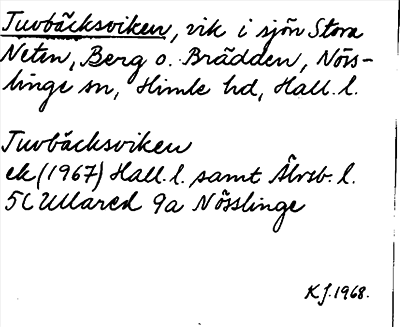 Tuvbäcksviken, vik i sjön Stora
Neten, Berg o. Brädden, Nös-
linge sn, Himle hd, Hall. l.
Tuvbäcksviken
ek (1967) Hall. l. samt Älvsb. l.
5C Ullared 9a Nösslinge
KJ. 1968.